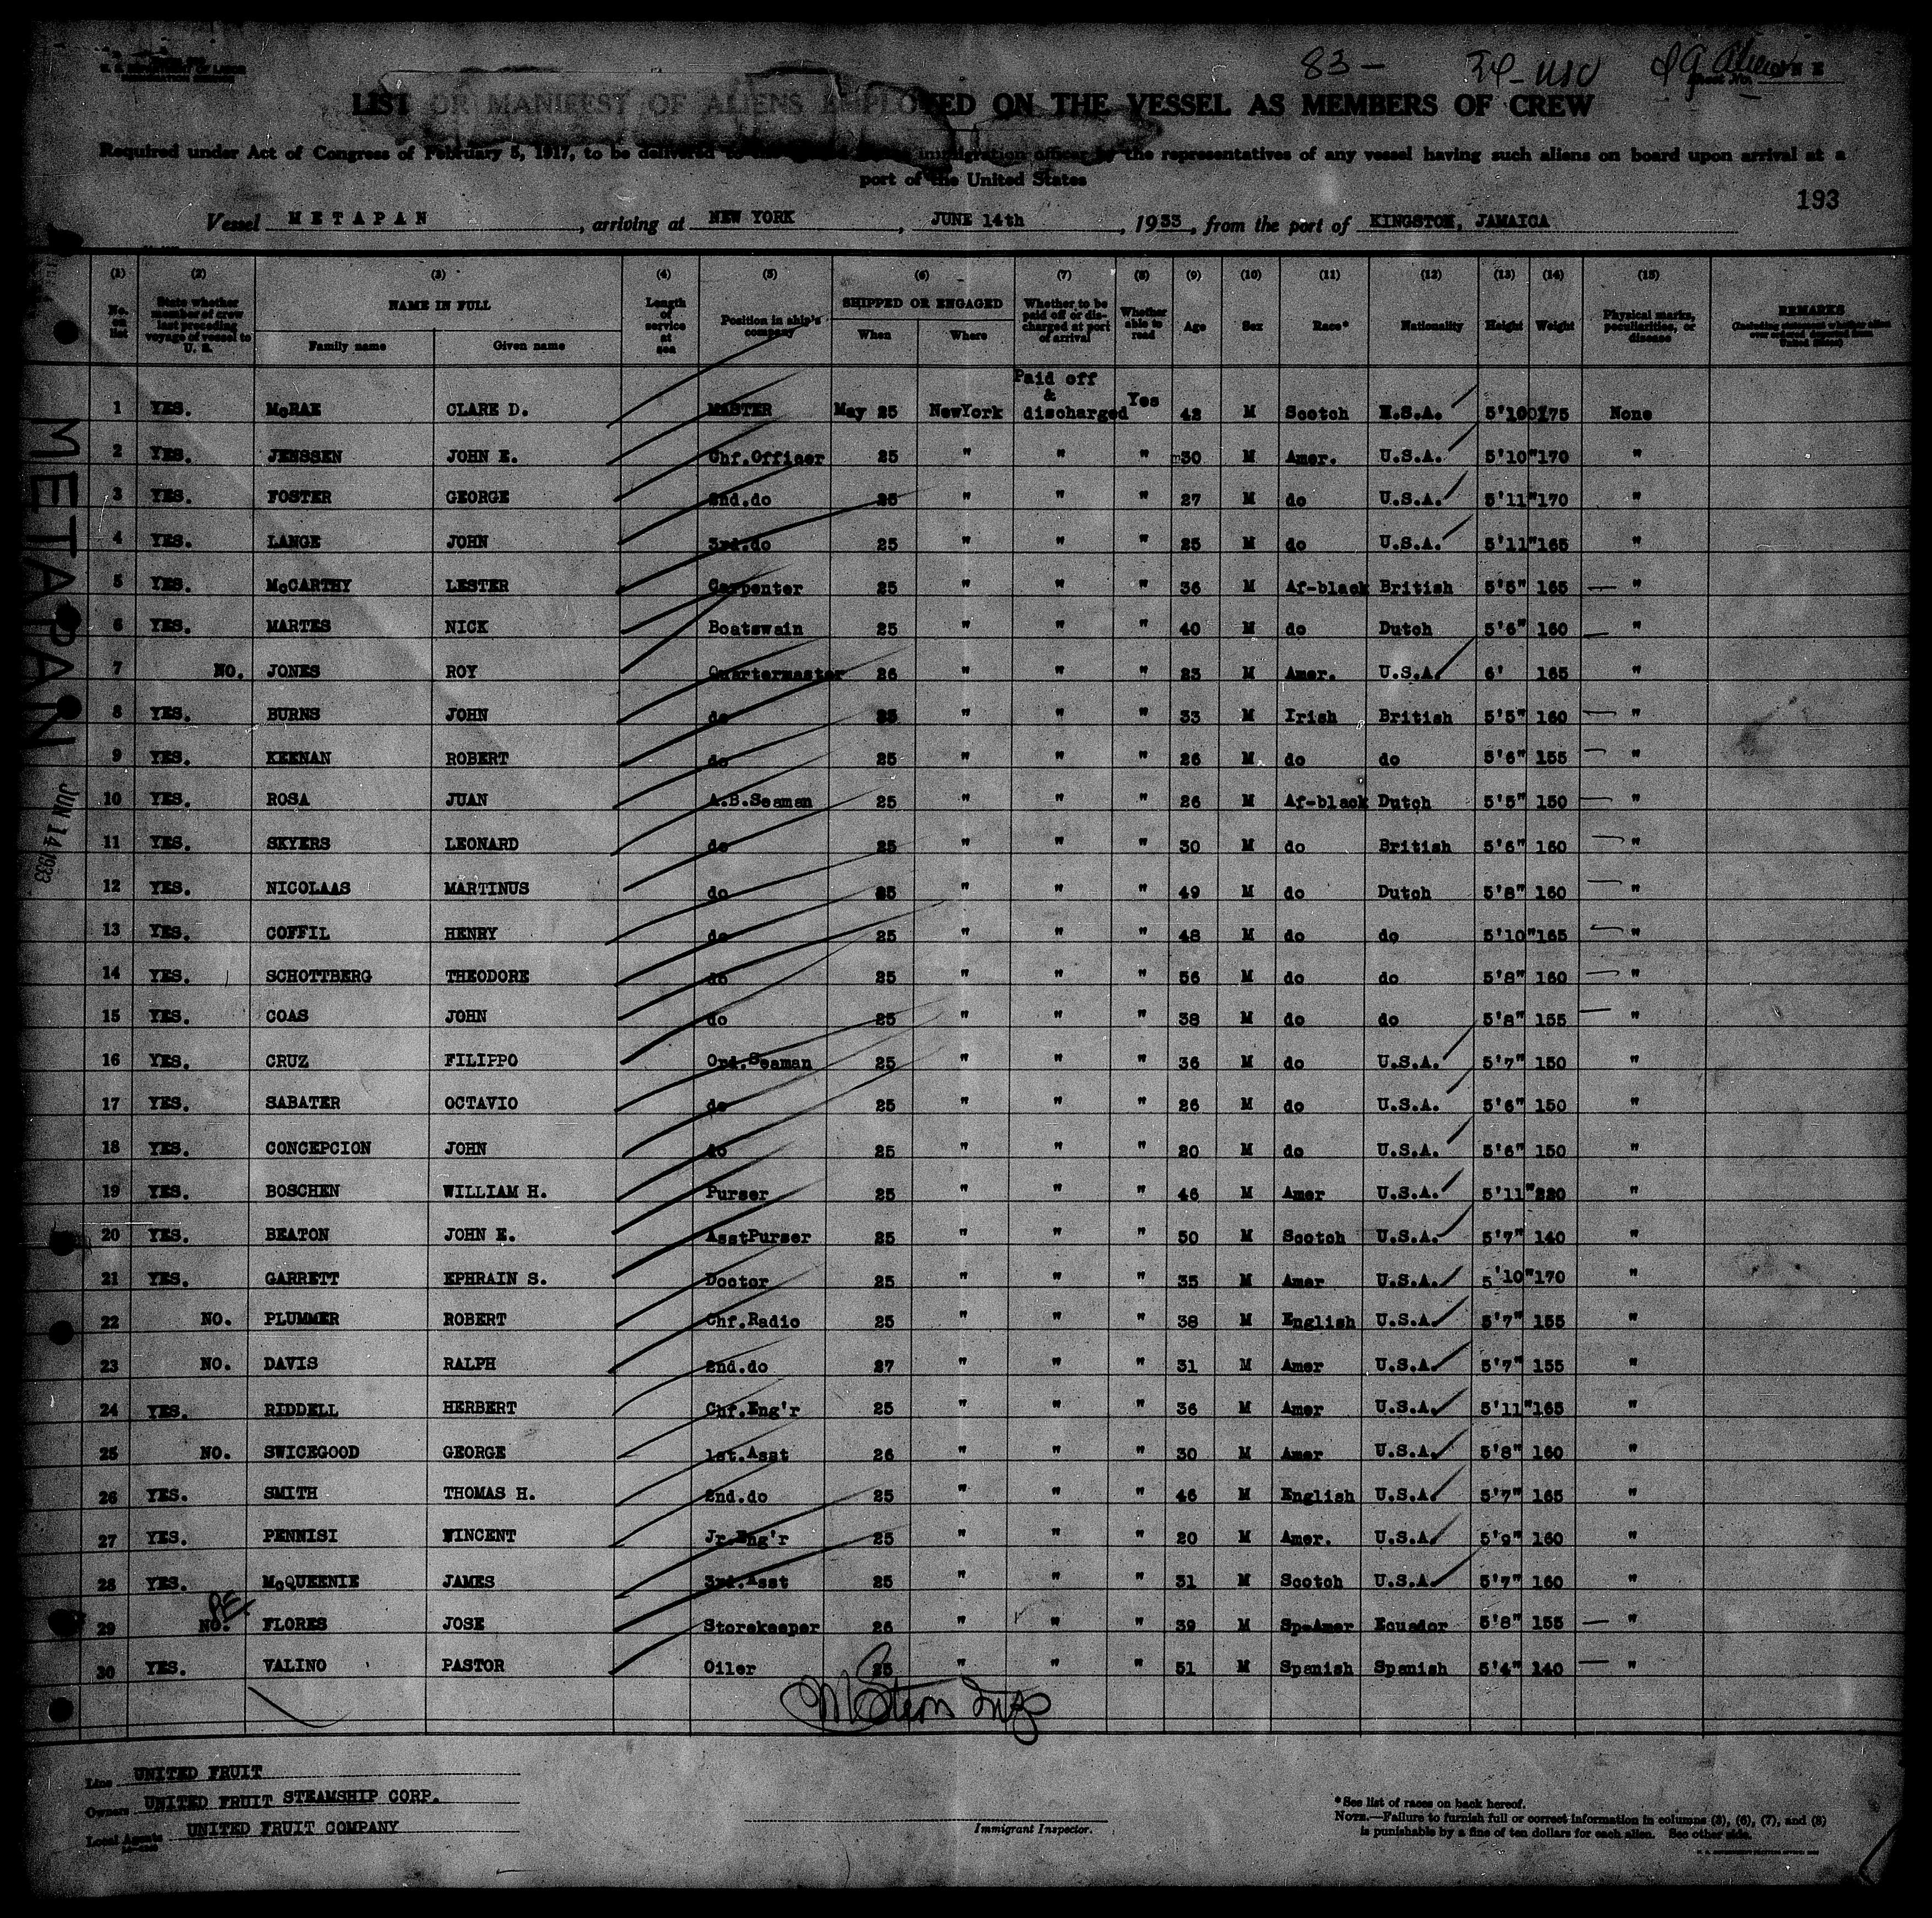 83 - 34 - USC
LIST OR MANIFEST OF ALIENS EMPLOYED ON THE VESSEL AS MEMBERS OF CREW
Required under Act of Congress of February 5, 1917, to be delivered to the immigration officer by the representatives of any vessel having such aliens on board upon arrival at a
port of the United States
193
Vessel METAPAN, arriving at NEW YORK, JUNE 14th, 1933, from the port of KINGSTON, JAMAICA
(1) (2) (3) (4) (5) (6) (7) (8) (9) (10) (11) (12) (13) (14) (15)
No. on list State whether member of crew last preceding voyage of vessel to U. S. NAME IN FULL Family name Given name Length of service at sea Position in ship's company SHIPPED OR ENGAGED When Where Whether to be paid off or discharged at port of arrival Whether able to read Age Sex Race* Nationality Height Weight Physical marks, peculiarities, or disease REMARKS
1 YES. McRAE CLARE D. MASTER May 25 NewYork Paid off & discharged Yes 42 M Scotch U.S.A. 5'10 175 None
2 YES. JENSSEN JOHN E. Chf.Officer 25 " " " 30 M Amer. U.S.A. 5'10" 170 "
3 YES. FOSTER GEORGE 2nd.do 25 " " " 27 M do U.S.A. 5'11" 170 "
4 YES. LANGE JOHN 3rd.do 25 " " " 25 M do U.S.A. 5'11" 165 "
5 YES. McCARTHY LESTER Carpenter 25 " " " 36 M Af-black British 5'5" 165 "
6 YES. MARTES NICK Boatswain 25 " " " 40 M do Dutch 5'6" 160 "
7 NO. JONES ROY Quartermaster 26 " " " 23 M Amer. U.S.A. 6' 165 "
8 YES. BURNS JOHN do 25 " " " 33 M Irish British 5'5" 160 "
9 YES. KEENAN ROBERT do 25 " " " 26 M do do 5'6" 155 "
10 YES. ROSA JUAN A.B.Seaman 25 " " " 26 M Af-black Dutch 5'5" 150 "
11 YES. SKYERS LEONARD do 25 " " " 30 M do British 5'6" 160 "
12 YES. NICOLAAS MARTINUS do 25 " " " 49 M do Dutch 5'8" 160 "
13 YES. COFFIL HENRY do 25 " " " 48 M do do 5'10" 165 "
14 YES. SCHOTTBERG THEODORE do 25 " " " 56 M do do 5'8" 160 "
15 YES. COAS JOHN do 25 " " " 38 M do do 5'8" 155 "
16 YES. CRUZ FILIPPO Ord.Seaman 25 " " " 36 M do U.S.A. 5'7" 150 "
17 YES. SABATER OCTAVIO do 25 " " " 26 M do U.S.A. 5'6" 150 "
18 YES. CONCEPCION JOHN do 25 " " " 20 M do U.S.A. 5'6" 150 "
19 YES. BOSCHEN WILLIAM H. Purser 25 " " " 46 M Amer U.S.A. 5'11" 220 "
20 YES. BEATON JOHN E. AsstPurser 25 " " " 50 M Scotch U.S.A. 5'7" 140 "
21 YES. GARRETT EPHRAIN S. Doctor 25 " " " 35 M Amer U.S.A. 5'10" 170 "
22 NO. PLUMMER ROBERT Chf.Radio 25 " " " 38 M English U.S.A. 5'7" 155 "
23 NO. DAVIS RALPH 2nd.do 27 " " " 31 M Amer U.S.A. 5'7" 155 "
24 YES. RIDDELL HERBERT Chf.Eng'r 25 " " " 36 M Amer U.S.A. 5'11" 165 "
25 NO. SWICEGOOD GEORGE 1st.Asst 26 " " " 30 M Amer U.S.A. 5'8" 160 "
26 YES. SMITH THOMAS H. 2nd.do 25 " " " 46 M English U.S.A. 5'7" 165 "
27 YES. PENNISI WINCENT Jr.Eng'r 25 " " " 20 M Amer. U.S.A. 5'9" 160 "
28 YES. McQUEENIE JAMES 3rd.Asst 25 " " " 31 M Scotch U.S.A. 5'7" 160 "
29 NO. FLORES JOSE Storekeeper 26 " " " 39 M Sp-Amer Ecuador 5'8" 155 "
30 YES. VALINO PASTOR Oiler 25 " " " 51 M Spanish Spanish 5'4" 140 "
METAPAN
JUN 14 1933
Line UNITED FRUIT
Owners UNITED FRUIT STEAMSHIP CORP.
Local Agents UNITED FRUIT COMPANY
Immigrant Inspector.
*See list of races on back hereof.
NOTE.—Failure to furnish full or correct information in columns (3), (6), (7), and (8)
is punishable by a fine of ten dollars for each alien. See other side.